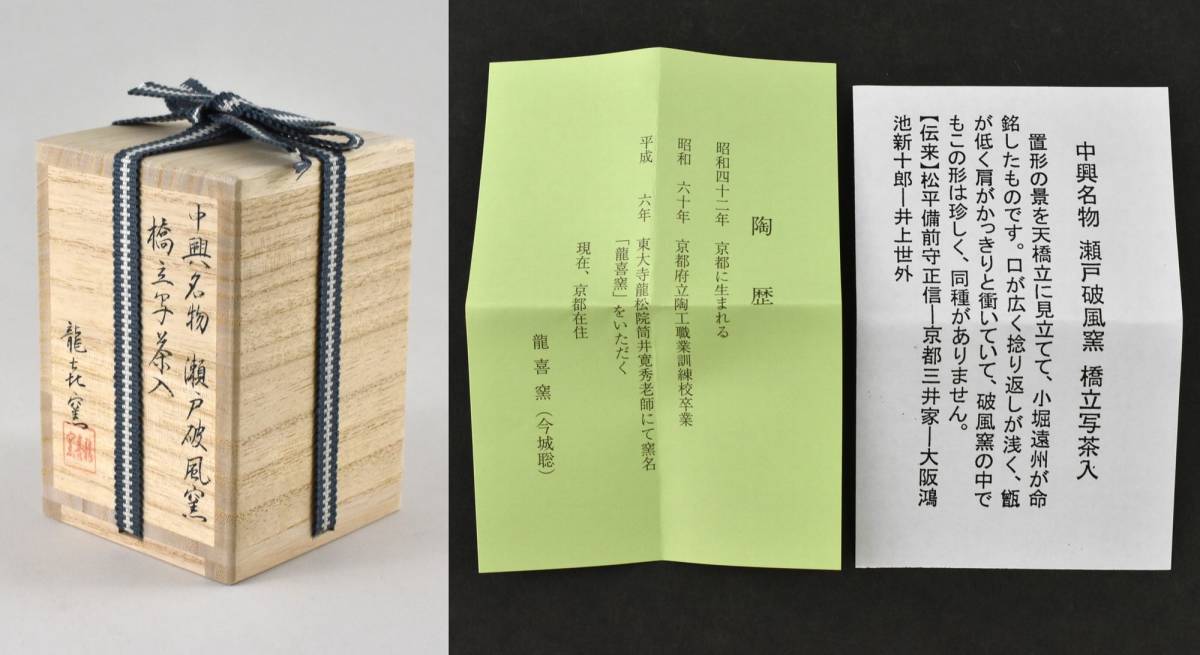 中興名物 瀬戸破風窯
橋立写茶入
龍喜窯
陶歴
昭和四十二年 京都に生まれる
昭和 六十年 京都府立陶工職業訓練校卒業
平成 六年 東大寺龍松院筒井寛秀老師にて窯名
「龍喜窯」をいただく
現在、京都在住
龍喜窯(今城聡)
中興名物 瀬戸破風窯 橋立写茶入
置形の景を天橋立に見立てて、小堀遠州が命
銘したものです。口が広く捻り返しが浅く、甑
が低く肩がかっきりと衝いていて、破風窯の中で
もこの形は珍しく、同種がありません。
【伝来】松平備前守正信―京都三井家―大阪鴻
池新十郎―井上世外